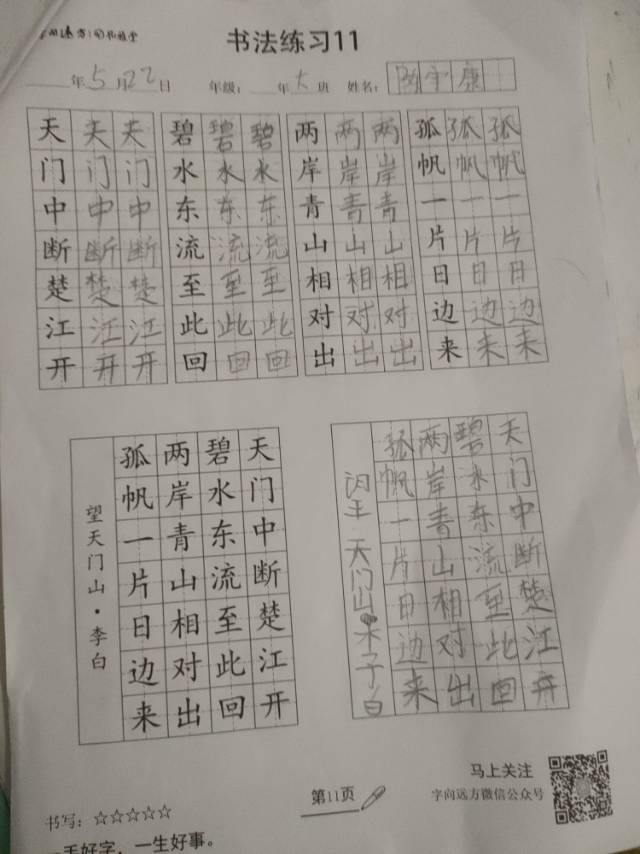 书法练习11
年5月22日 年级: 年大班 姓名: 康
天天天 碧碧碧 两两两 孤孤孤
门门门 水水水 岸岸岸 帆帆帆
中中中 东东东 青青青 一一一
断断断 流流流 山山山 片片片
楚楚楚 至至至 相相相 日日日
江江江 此此此 对对对 边边边
开开开 回回回 出出出 来来来
望天门山·李白
天门中断楚江开
碧水东流至此回
两岸青山相对出
孤帆一片日边来
天门山·木子白
天门中断楚江开
碧水东流至此回
两岸青山相对出
孤帆一片日边来
马上关注
字向远方微信公众号
第11页
书写: ☆☆☆☆☆
手好字，一生好事。